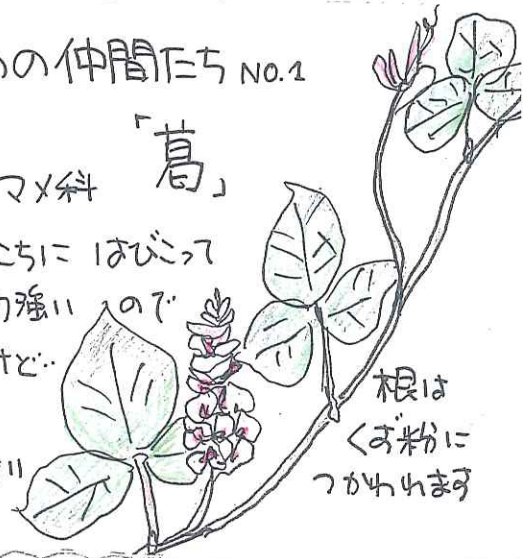 の仲間たち NO.1
「葛」
マメ科
こちに はびこって
力強い ので
けど‥
い
根は
くず粉に
つかわれます